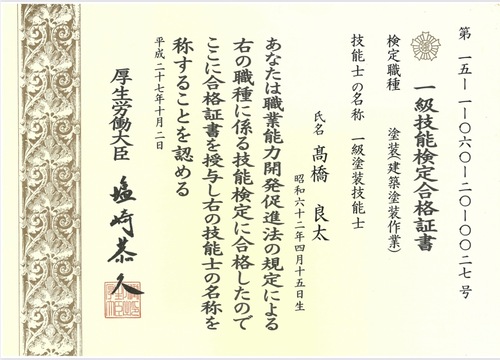 第 一五－一－〇六〇－二〇－〇〇二七 号
一級技能検定合格証書
検定職種 塗装(建築塗装作業)
技能士の名称 一級塗装技能士
氏名 髙橋 良太
昭和六十二年四月十五日生
あなたは職業能力開発促進法の規定による
右の職種に係る技能検定に合格したので
ここに合格証書を授与し右の技能士の名称を
称することを認める
平成二十七年十月二日
厚生労働大臣 塩崎恭久